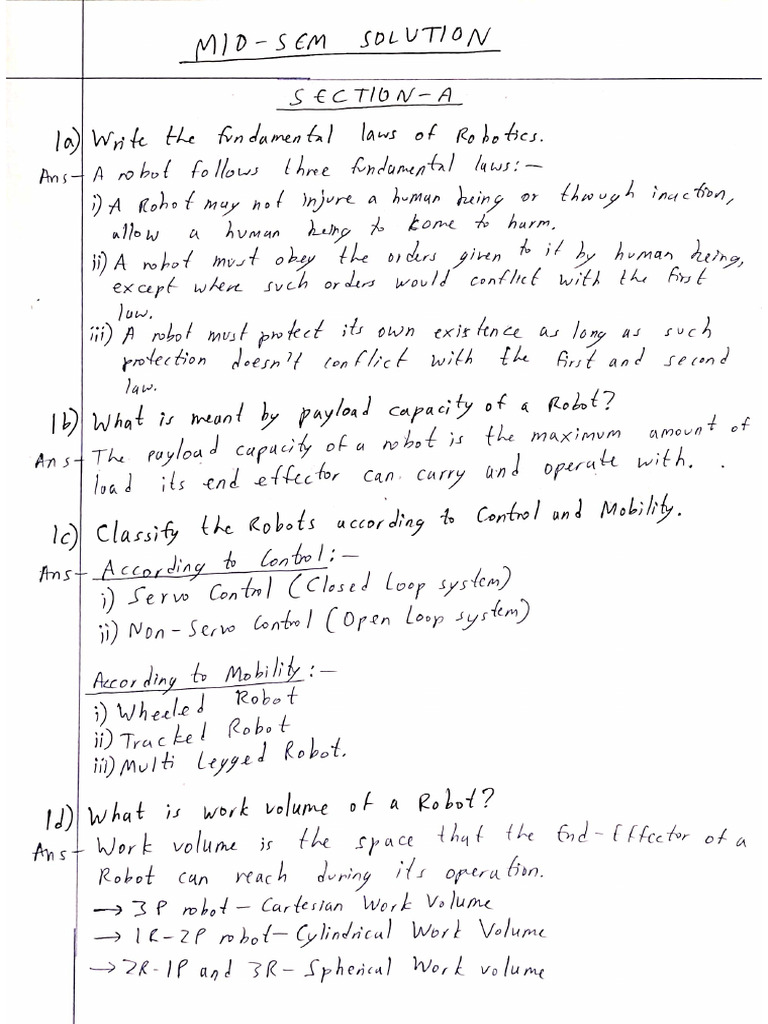 MID-SEM SOLUTION
SECTION-A
1a) Write the fundamental laws of Robotics.
Ans- A robot follows three fundamental laws:-
i) A Robot may not injure a human being or through inaction,
allow a human being to kome to harm.
ii) A robot must obey the orders given to it by human being,
except where such orders would conflict with the first
law.
iii) A robot must protect its own existence as long as such
protection doesn't conflict with the first and second
law.
1b) What is meant by payload capacity of a Robot?
Ans- The payload capacity of a robot is the maximum amount of
load its end effector can carry and operate with.
1c) Classify the Robots according to Control and Mobility.
Ans- According to Control:-
i) Servo Control (Closed Loop system)
ii) Non-Servo Control (Open Loop system)
According to Mobility:-
i) Wheeled Robot
ii) Tracked Robot
iii) Multi Legged Robot.
1d) What is work volume of a Robot?
Ans- Work volume is the space that the End-Effector of a
Robot can reach during its operation.
→ 3P robot - Cartesian Work Volume
→ 1R-2P robot- Cylindrical Work Volume
→ 2R-1P and 3R- Spherical Work volume